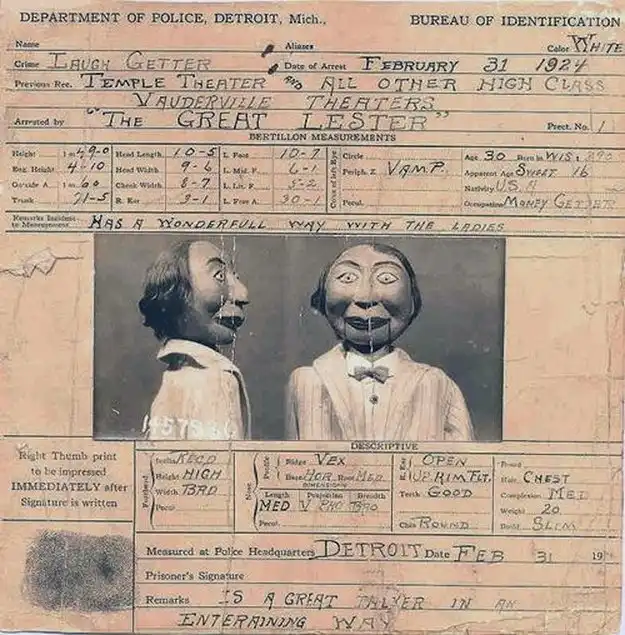 DEPARTMENT OF POLICE, DETROIT, Mich., BUREAU OF IDENTIFICATION
Name Aliases Color WHITE
Crime LAUGH GETTER Date of Arrest FEBRUARY 31 1924
Previous Rec. TEMPLE THEATER AND ALL OTHER HIGH CLASS
VAUDERVILLE THEATERS
Arrested by "THE GREAT LESTER" Prect. No. 1
BERTILLON MEASUREMENTS
Height 1 m 49-0 Head Length 10-5 L. Foot 10-7 Circle Age 30 Born in WIS
Eng. Height 4-10 Head Width 9-6 L. Mid. F. 6-1 Periph. Z VAMP. Apparent Age SWEET 16
Outside A. 1 m 60 Cheek Width 8-7 L. Lit. F. 5-2 Nativity U.S.A
Trunk 71-5 R. Ear 3-1 L. Fore A. 30-1 Pecul. Occupation MONEY GETTER
Color of Left Eye
Remarks Incident to Measurement HAS A WONDERFULL WAY WITH THE LADIES
DESCRIPTIVE
Right Thumb print
to be impressed
IMMEDIATELY after
Signature is written
Forehead
Inclin. RECD
Height HIGH
Width BRD
Pecul
Nose
Profile
Ridge VEX
Base HOR Root MED
DIMENSIONS
Length Projection Breadth
MED V PRO BRO
Pecul.
R. Ear
OPEN
UP. RIM FLT.
Teeth GOOD
Chin ROUND
Beard
Hair CHEST
Complexion MED
Weight 20
Build SLIM
Measured at Police Headquarters DETROIT Date FEB 31 19
Prisoner's Signature
Remarks IS A GREAT TALKER IN AN
ENTERAINING WAY